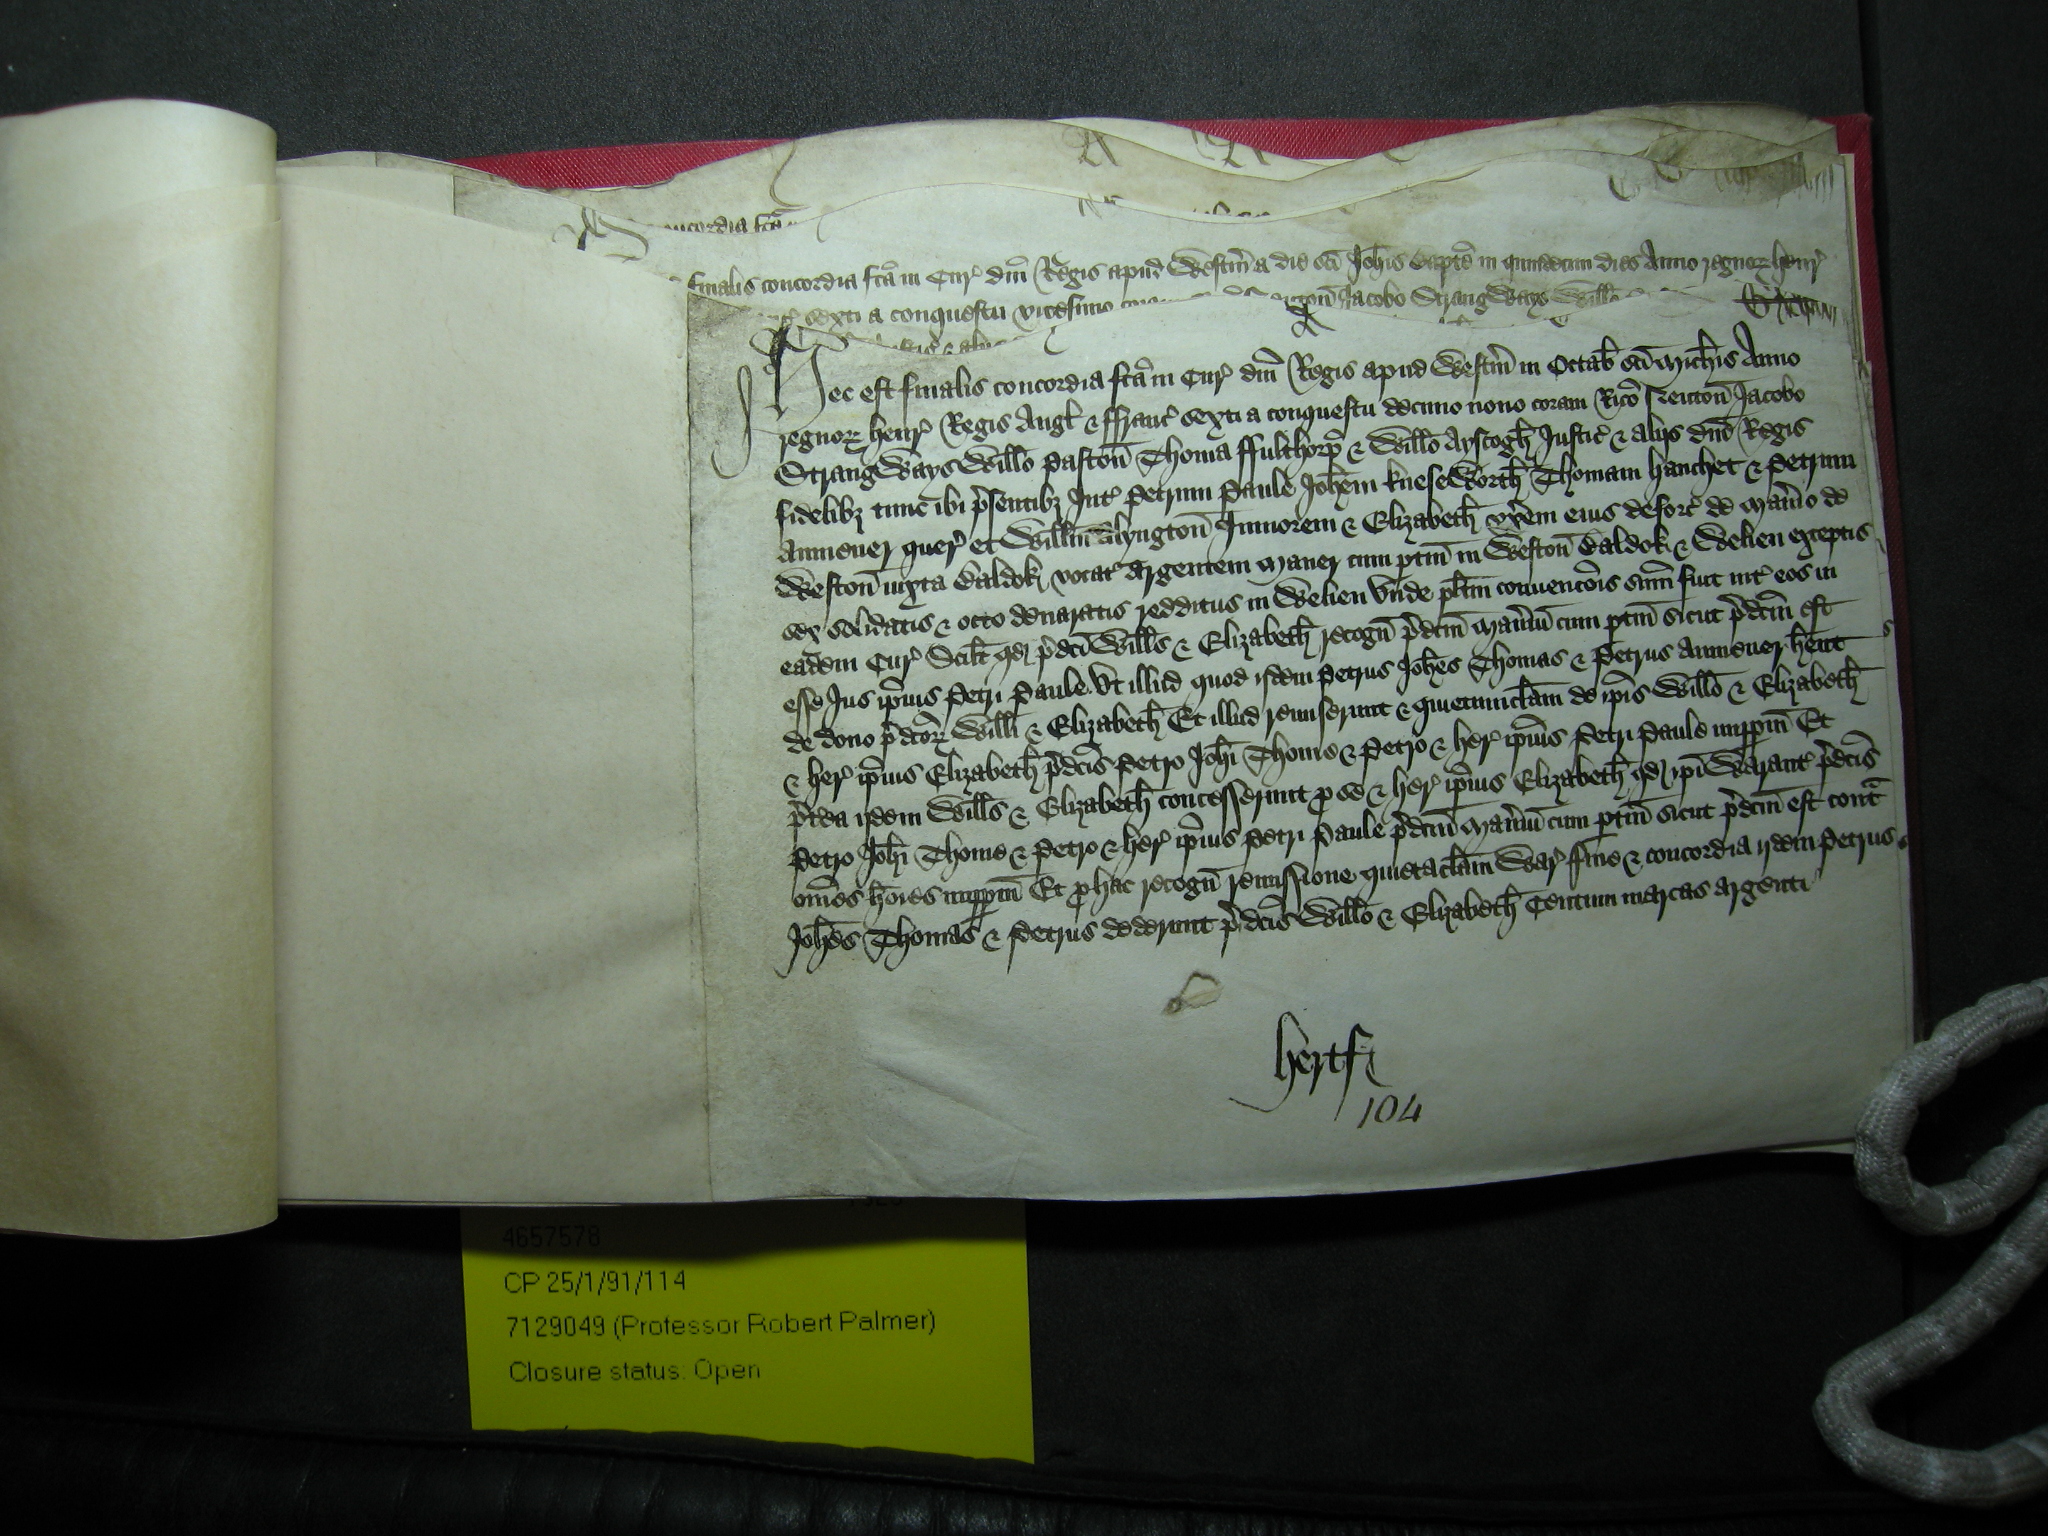 concordia fcā
finalis concordia fcā in Cur̉ dm̄ Regis apud Westm̄ a die sc̄i Joh̄is Bapt̄e in quindecim dies Anno regnoꝝ Henr̉
sexti a conquestu vicesimo Jacobo Strangways Willō
Hec est finalis concordia fcā in Cur̉ dm̄ Regis apud Westm̄ in Octab̄ sc̄i Mich̄is Anno
regnoꝝ Henr̉ Regis Angl̄ & ffranc̉ sexti a conquestu decimo nono coram Ric̄o Neuton̄ Jacobo
Strangways Willō Paston̄ Thoma ffulthorp̄ & Willō Ayscogh̄ Justic̉ & alijs dm̄ Regis
fidelibꝫ tunc ibi p̄sentibꝫ Int̉ Petrum Paule Joh̄em Kneseworth̄ Thomam Hanchet & Petrum
Anmeuer quer̉ et Willm̄ Alyngton̄ Juniorem & Elizabeth̄ vx̄em eius deforc̉ de Man̄io de
Weston̄ iuxta Baldok vocat̉ Argentem Maner cum ptin̄ in Weston̄ Baldok & Welien exceptis
sex solidatis & octo denaratis redditus in Welien Vnde pl̄itm̄ convenc̄ois sum̄ fuit int̉ eos in
eadem Cur̉ Scilt̄ qd̉ p̄dc̄i Will̄s & Elizabeth̄ recogn̄ p̄dcm̄ Man̄iū cum ptin̄ sicut p̄dcm̄ est
esse Jus ip̄ius Petri Paule Vt illud quod ijdem Petrus Joh̄es Thomas & Petrus Anmeuer h̄ent
de dono p̄dc̄oꝝ Willī & Elizabeth̄ Et illud remiserunt & quietumclam̄ de ip̄is Willō & Elizabeth̄
& her̉ ip̄ius Elizabeth̄ p̄dc̄is Petro Joh̄i Thome & Petro & her̉ ip̄ius Petri Paule imppm̄ Et
p̄tea ijdem Will̄s & Elizabeth̄ concesserunt p se & her̉ ip̄ius Elizabeth̄ qd̉ ip̄i Warant̉ p̄dc̄is
Petro Joh̄i Thome & Petro & her̉ ip̄ius Petri Paule p̄dcm̄ Man̄iū cum ptin̄ sicut p̄dcm̄ est cont̄
om̄es hōies imppm̄ Et p hac recogn̄ remissione quietaclam̄ War̉ fine & concordia ijdem Petrus
Joh̄es Thomas & Petrus dederunt p̄dc̄is Willō & Elizabeth̄ Centum marcas argenti
Hertf̉
104
4657578
CP 25/1/91/114
7129049 (Professor Robert Palmer)
Closure status: Open